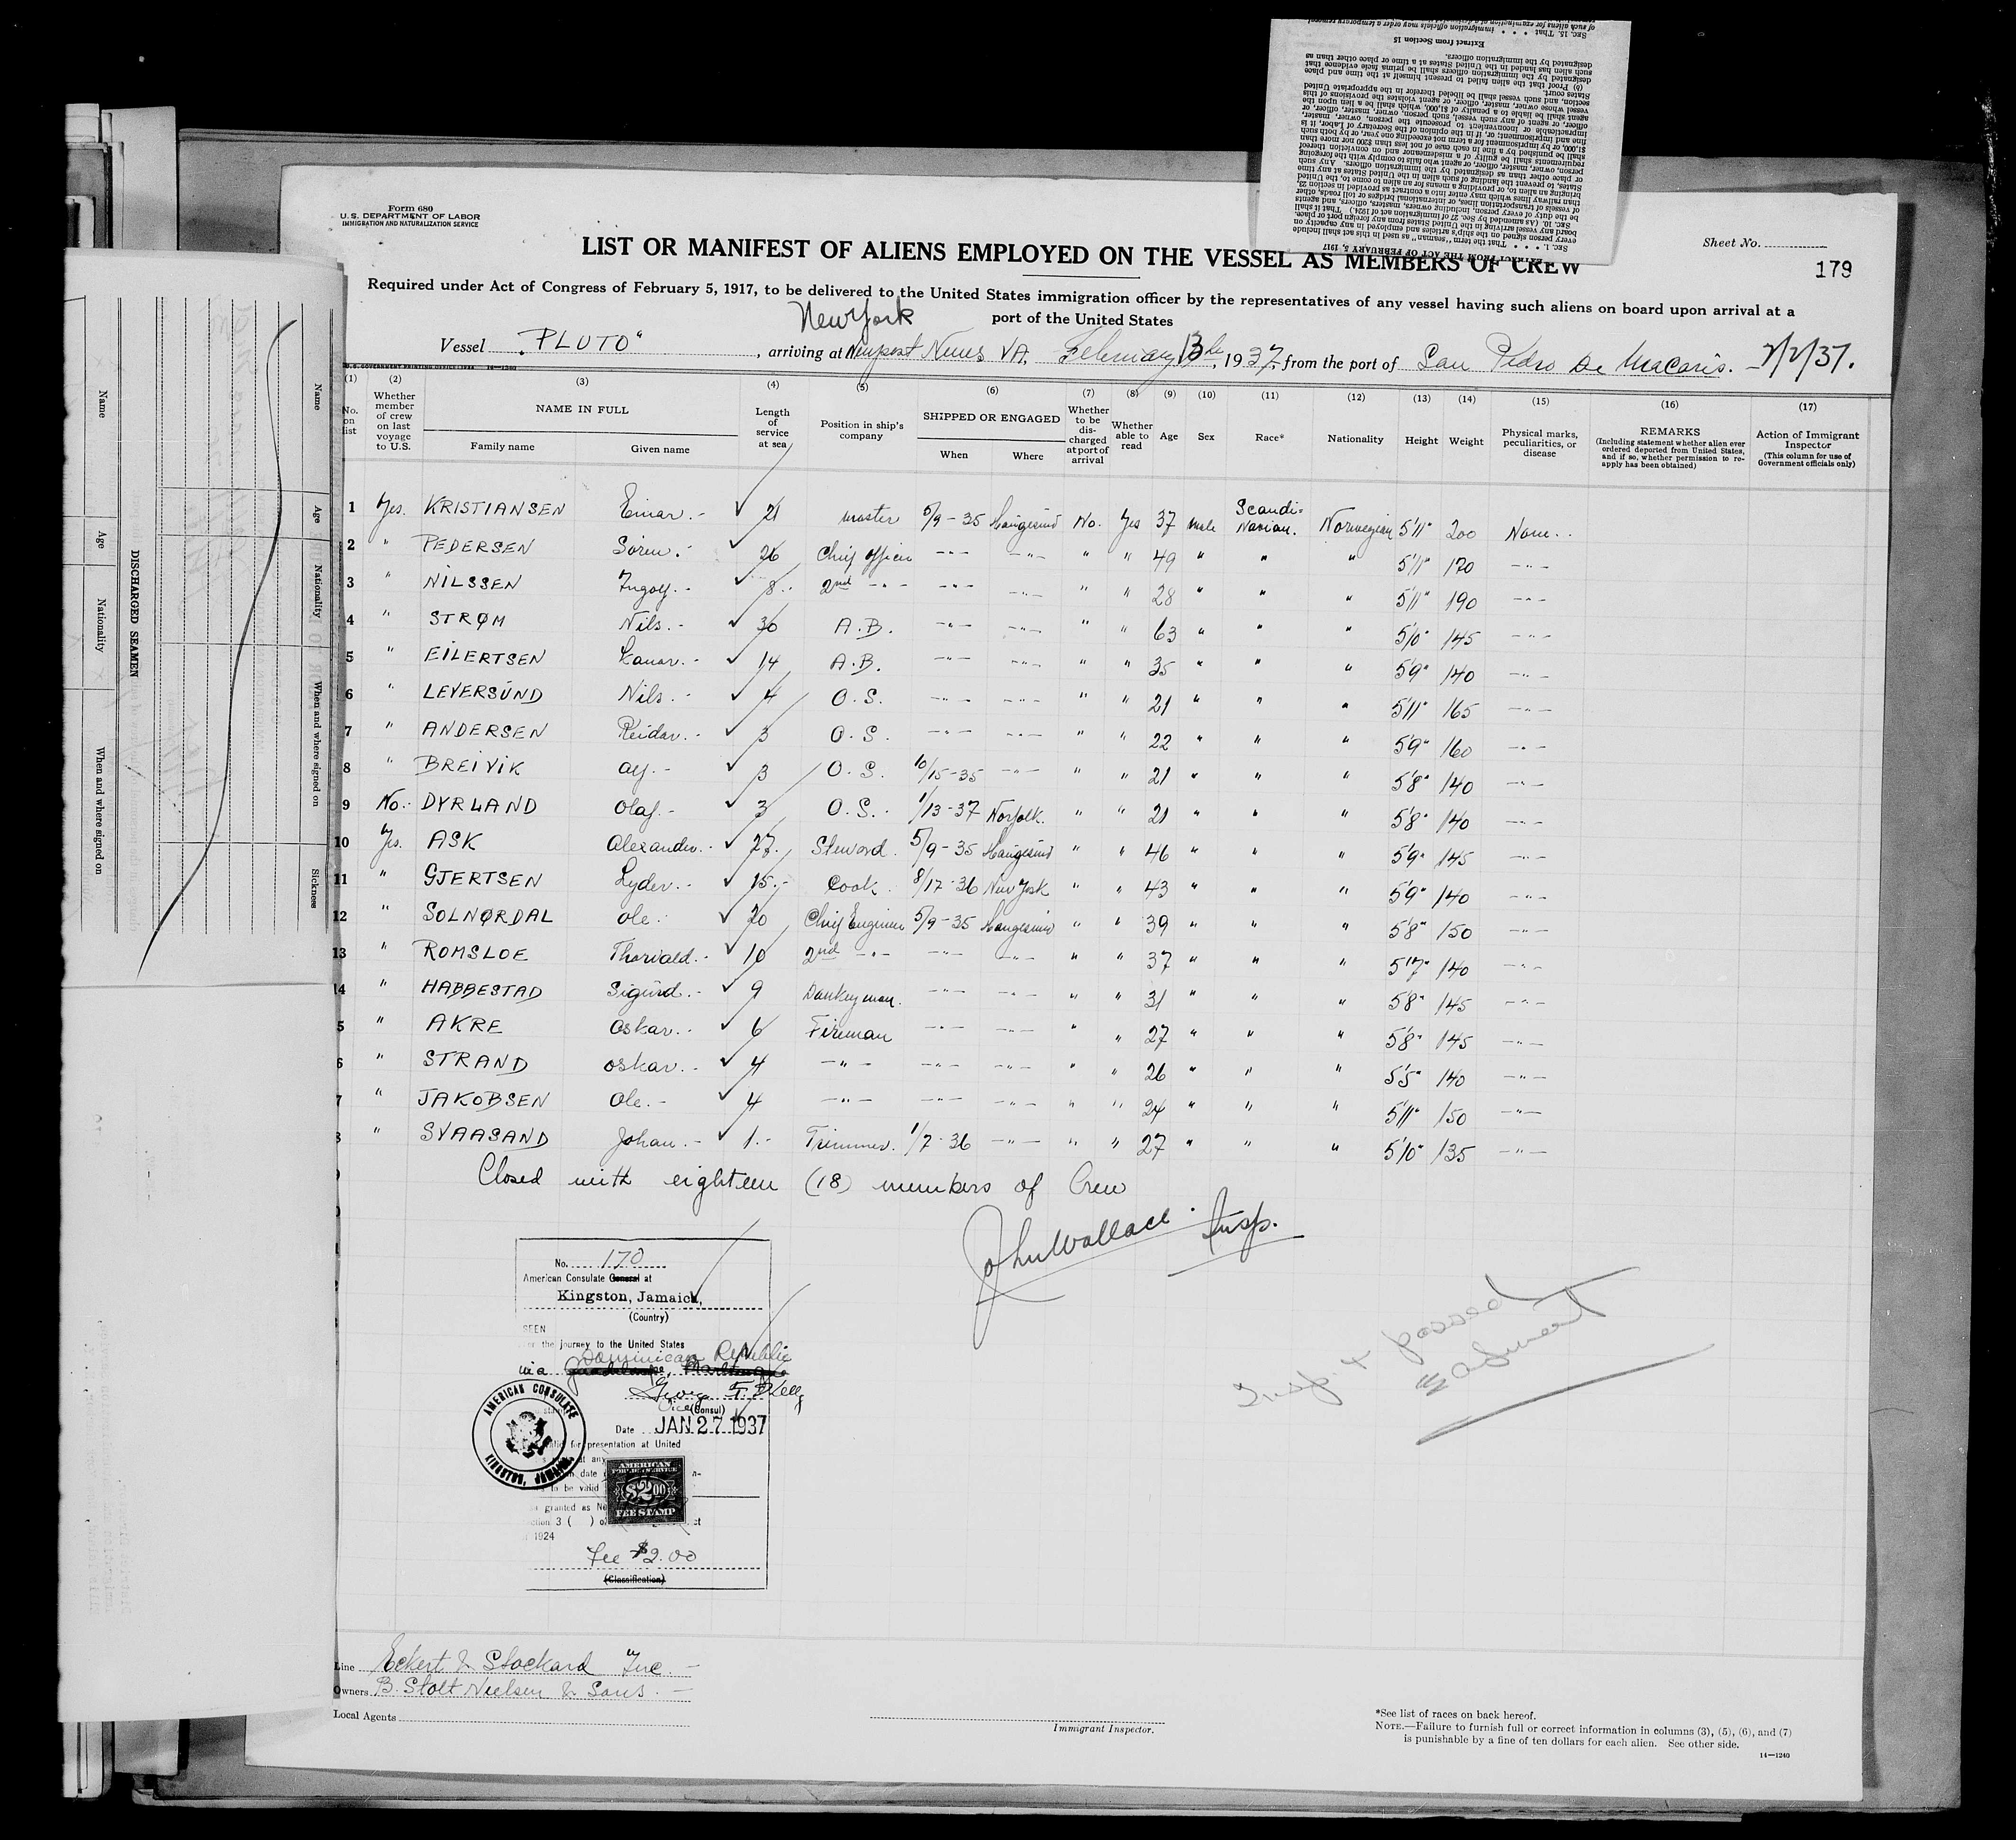 SEC. 15. That * * * immigration officials may order a temporary removal
Extract from Section 15
designated by the immigration officers.
such alien has landed in the United States at a time or place other than as
designated by the immigration officers shall be prima facie evidence that
(b) Proof that the alien failed to present himself at the time and place
States court.
section, and such vessel shall be libeled therefor in the appropriate United
vessel whose owner, master, officer, or agent violates the provisions of this
agent shall be liable to a penalty of $1,000, which shall be a lien upon the
officer, or agent of any such vessel, such person, owner, master, officer, or
impracticable or inconvenient to prosecute the person, owner, master,
fine and imprisonment; or, if in the opinion of the Secretary of Labor, it is
$1,000, or by imprisonment for a term not exceeding one year, or by both such
shall be punished by a fine in each case of not less than $200 nor more than
requirements shall be guilty of a misdemeanor and on conviction thereof
person, owner, master, officer, or agent who fails to comply with the foregoing
or place other than as designated by the immigration officers. Any such
States, to prevent the landing of such alien in the United States at any time
bringing an alien to, or providing a means for an alien to come to, the United
than railway lines which may enter into a contract as provided in section 23,
of vessels of transportation lines, or international bridges or toll roads, other
be the duty of every person, including owners, masters, officers, and agents
SEC. 10. (As amended by Sec. 27 of immigration act of 1924.) That it shall
board any vessel arriving in the United States from any foreign port or place.
every person signed on the ship's articles and employed in any capacity on
SEC. 1. * * * That the term "seaman" as used in this act shall include
EXTRACT FROM THE ACT OF FEBRUARY 5, 1917
Form 680
U. S. DEPARTMENT OF LABOR
IMMIGRATION AND NATURALIZATION SERVICE
Sheet No.
179
LIST OR MANIFEST OF ALIENS EMPLOYED ON THE VESSEL AS MEMBERS OF CREW
Required under Act of Congress of February 5, 1917, to be delivered to the United States immigration officer by the representatives of any vessel having such aliens on board upon arrival at a
port of the United States
New York
Vessel "PLUTO", arriving at Newport News VA, February 13th, 1937, from the port of San Pedro de Macoris. 2/2/37.
(1) (2) (3) (4) (5) (6) (7) (8) (9) (10) (11) (12) (13) (14) (15) (16) (17)
No. on list
Whether member of crew on last voyage to U.S.
NAME IN FULL
Family name Given name
Length of service at sea
Position in ship's company
SHIPPED OR ENGAGED
When Where
Whether to be discharged at port of arrival
Whether able to read
Age Sex Race* Nationality Height Weight
Physical marks, peculiarities, or disease
REMARKS
(Including statement whether alien ever ordered deported from United States, and if so, whether permission to reapply has been obtained)
Action of Immigrant Inspector
(This column for use of Government officials only)
1 Yes. KRISTIANSEN Einar. - 21 master 5/9-35 Haugesund No. Yes 37 male Scandinavian. Norwegian 5'11" 200 None..
2 " PEDERSEN Sören. 26 Chief officer -"- -"- " " 49 " " " 5'11" 170 -"-
3 " NILSSEN Ingolf. - 8 2nd -"- -"- -"- " " 28 " " " 5'11" 190 -"-
4 " STRØM Nils. - 30 A.B. -"- -"- " " 63 " " " 5'10" 145 -"-
5 " EILERTSEN - 14 A.B. -"- -"- " " 35 " " " 5'9" 140 -"-
6 " LEVERSUND Nils. - 4 O.S. -"- -"- " " 21 " " " 5'11" 165 -"-
7 " ANDERSEN Reidar. - 3 O.S. -"- -"- " " 22 " " " 5'9" 160 -"-
8 " BREIVIK - 3 O.S. 10/15-35 -"- " " 21 " " " 5'8" 140 -"-
9 No. DYRLAND Olaf. - 3 O.S. 1/13-37 Norfolk. " " 21 " " " 5'8" 140 -"-
10 Yes. ASK Alexander. - 27. Steward. 5/9-35 Haugesund " " 46 " " " 5'9" 145 -"-
11 " GJERTSEN Lyder. - 15. Cook. 8/17-36 New York " " 43 " " " 5'9" 140 -"-
12 " SOLNØRDAL Ole. 20 Chief Engineer 5/9-35 Haugesund " " 39 " " " 5'8" 150 -"-
13 " ROMSLOE Thorvald. - 10 2nd -"- -"- -"- " " 37 " " " 5'7" 140 -"-
14 " HABBESTAD Sigurd. - 9 Donkeyman. -"- -"- " " 31 " " " 5'8" 145 -"-
5 " AKRE Oskar. - 6 Fireman -"- -"- " " 27 " " " 5'8" 145 -"-
6 " STRAND Oskar. - 4 -"- -"- -"- " " 26 " " " 5'5" 140 -"-
7 " JAKOBSEN Ole. - 4 -"- -"- -"- " " 24 " " " 5'11" 150 -"-
8 " SVAASAND Johan. - 1. - Trimmer. 1/7-36 -"- " " 27 " " " 5'10" 135 -"-
Closed with eighteen (18) members of Crew
John Wallace Insp.
Insp. & passed
No. 170
American Consulate General at
Kingston, Jamaica,
(Country)
SEEN
the journey to the United States
Dominican Republic
via
George F. Kelly
Vice (Consul)
Date JAN 27 1937
for presentation at United
at any
date
to be valid
granted as
3 ( )
1924
AMERICAN CONSULATE
KINGSTON, JAMAICA
AMERICAN
$2.00
FEE STAMP
Fee $2.00
(Classification)
Line Eckert & Stockard Inc. -
Owners B. Stolt Nielsen & Sons. -
Local Agents
Immigrant Inspector.
*See list of races on back hereof.
NOTE.—Failure to furnish full or correct information in columns (3), (5), (6), and (7)
is punishable by a fine of ten dollars for each alien. See other side.
14—1240
DISCHARGED SEAMEN
Name Age Nationality When and where signed on
Name Age Nationality When and where signed on Sickness